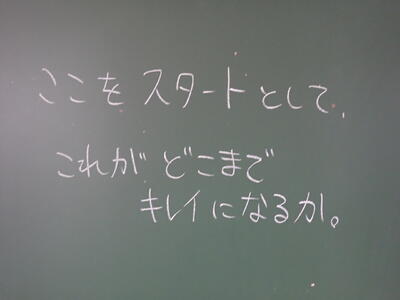 ここをスタートとして、
これがどこまで
キレイになるか。